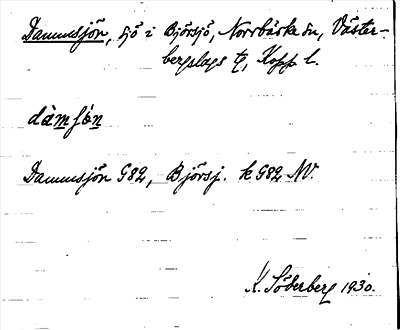 Dammsjön, sjö i Björsjö, Norrbärke sn, Väster-
bergslags tg, Kopp l.
dàmʃö́n
Dammsjön G82, Björsj. k G82 NV.
K. Söderberg 1930.